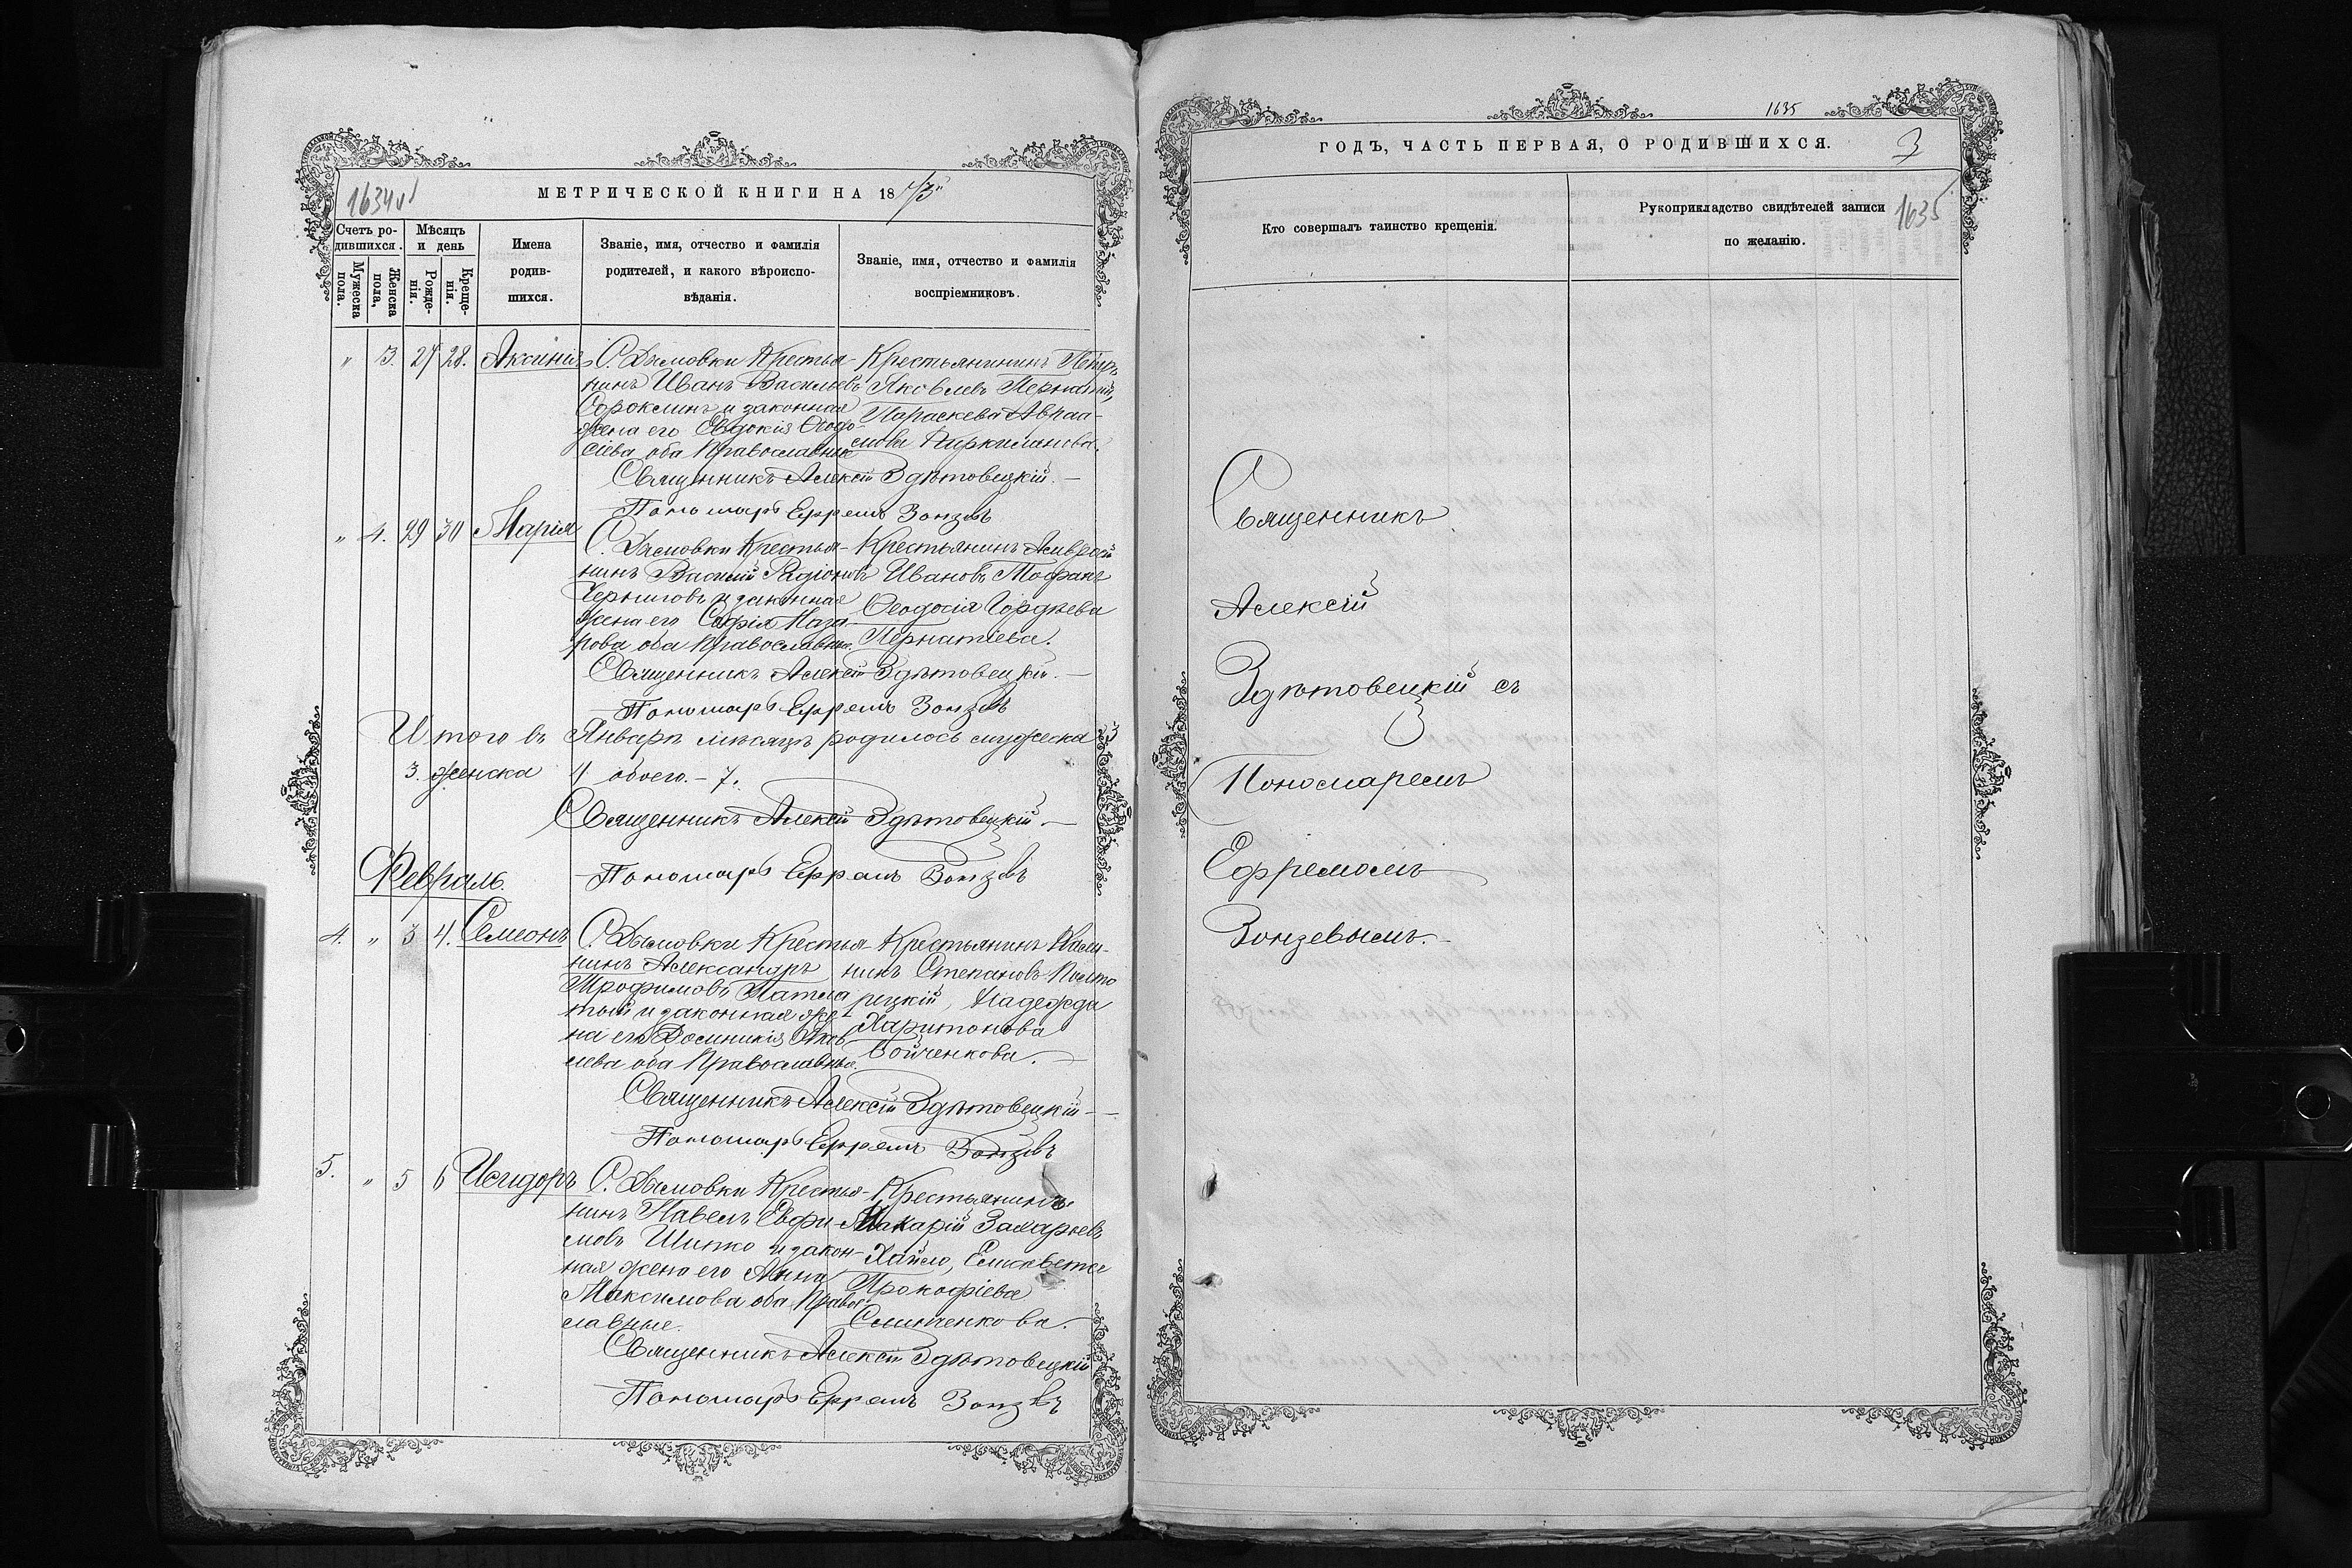 1634 об
МЕТРИЧЕСКОЙ КНИГИ НА 18
Счетъ ро-
дившихся.
Мужеска
пола.
Женска
пола,
Мѣсяцъ
и день
Рожде-
нія.
Креще-
нія.
Имена
родив-
шихся.
Званіе, имя, отчество и фамилія
родителей, и какого вѣроиспо-
вѣданія.
Званіе, имя, отчество и фамилія
воспріемниковъ.
„ 3. 27 28. Аксинія
С. Дымовки Крестья-
нинъ Иванъ Васильевъ
Сороклинъ и законная
жена его Евдокія Ѳеодо-
сіева оба Православные
Крестьянинъ Петръ
Яковлевъ Пернатій,
Параскева Авраа-
мова
Священникъ Алексій Здѣтовецкій.
Пономарь Ефремъ Зонзевъ
„ 4. 29 30 Марія
С. Дымовки Крестья-
нинъ Василій Радіоновъ
Черниговъ и законная
жена его Софія Наза-
рова оба Православные.
Крестьянинъ Амвросій
Ивановъ Тофанъ
Ѳеодосія Гордѣева
Пернатіева.
Священникъ Алексій Здѣтовецкій.
Пономарь Ефремъ Зонзевъ
Итого въ Январѣ мѣсяцѣ родилось мужеска 3
3. женска 4 обоего. – 7.
Священникъ Алексій Здѣтовецкій.
Пономарь Ефремъ Зонзевъ
Февраль.
4. „ 3 4. Симеонъ
С. Дымовки Крестья-
нинъ Александръ
Трофимовъ Патла
тый и законная же-
на его Домникія Яков
лева оба Православные.
Крестьянинъ Калли-
никъ Степановъ Полто
рецкій, Надежда
Харитонова
Бойченкова.
Священникъ Алексій Здѣтовецкій
Пономарь Ефремъ Зонзевъ
5. „ 5 6 Исидоръ
С. Дымовки Крестья-
нинъ Павелъ Евфи-
мовъ Шипко и закон-
ная жена его Анна
Максимова оба Правос-
лавные.
Крестьянинъ
Макарій Захарьевъ
Хайло, Елисавета
Прокофіева
Слинченкова.
Священникъ Алексій Здѣтовецкій
Пономарь Ефремъ Зонзевъ
1635
ГОДЪ, ЧАСТЬ ПЕРВАЯ, О РОДИВШИХСЯ.
3
Кто совершалъ таинство крещенія.
Рукоприкладство свидѣтелей записи
по желанію.
1635
Священникъ
Алексій
Здѣтовецкій съ
Пономаремъ
Ефремомъ
Зонзевымъ.